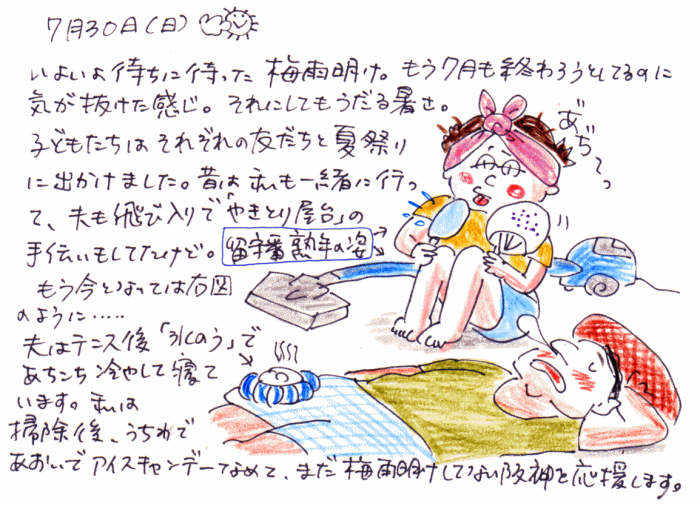 7月30日(日)
いよいよ待ちに待った梅雨明け。もう7月も終わろうとしてるのに
気が抜けた感じ。それにしてもうだる暑さ。
子どもたちはそれぞれの友だちと夏祭り
に出かけました。昔は私も一緒に行っ
て、夫も飛び入りで「やきとり屋台」の
手伝いもしてたけど。
留守番熟年の姿
もう今となっては右図
のように……
夫はテニス後「氷のう」で
あちこち冷やして寝て
います。私は
掃除後、うちわで
あおいでアイスキャンデーなめて、まだ梅雨明けしてない阪神を応援します。
あぢ〜っ